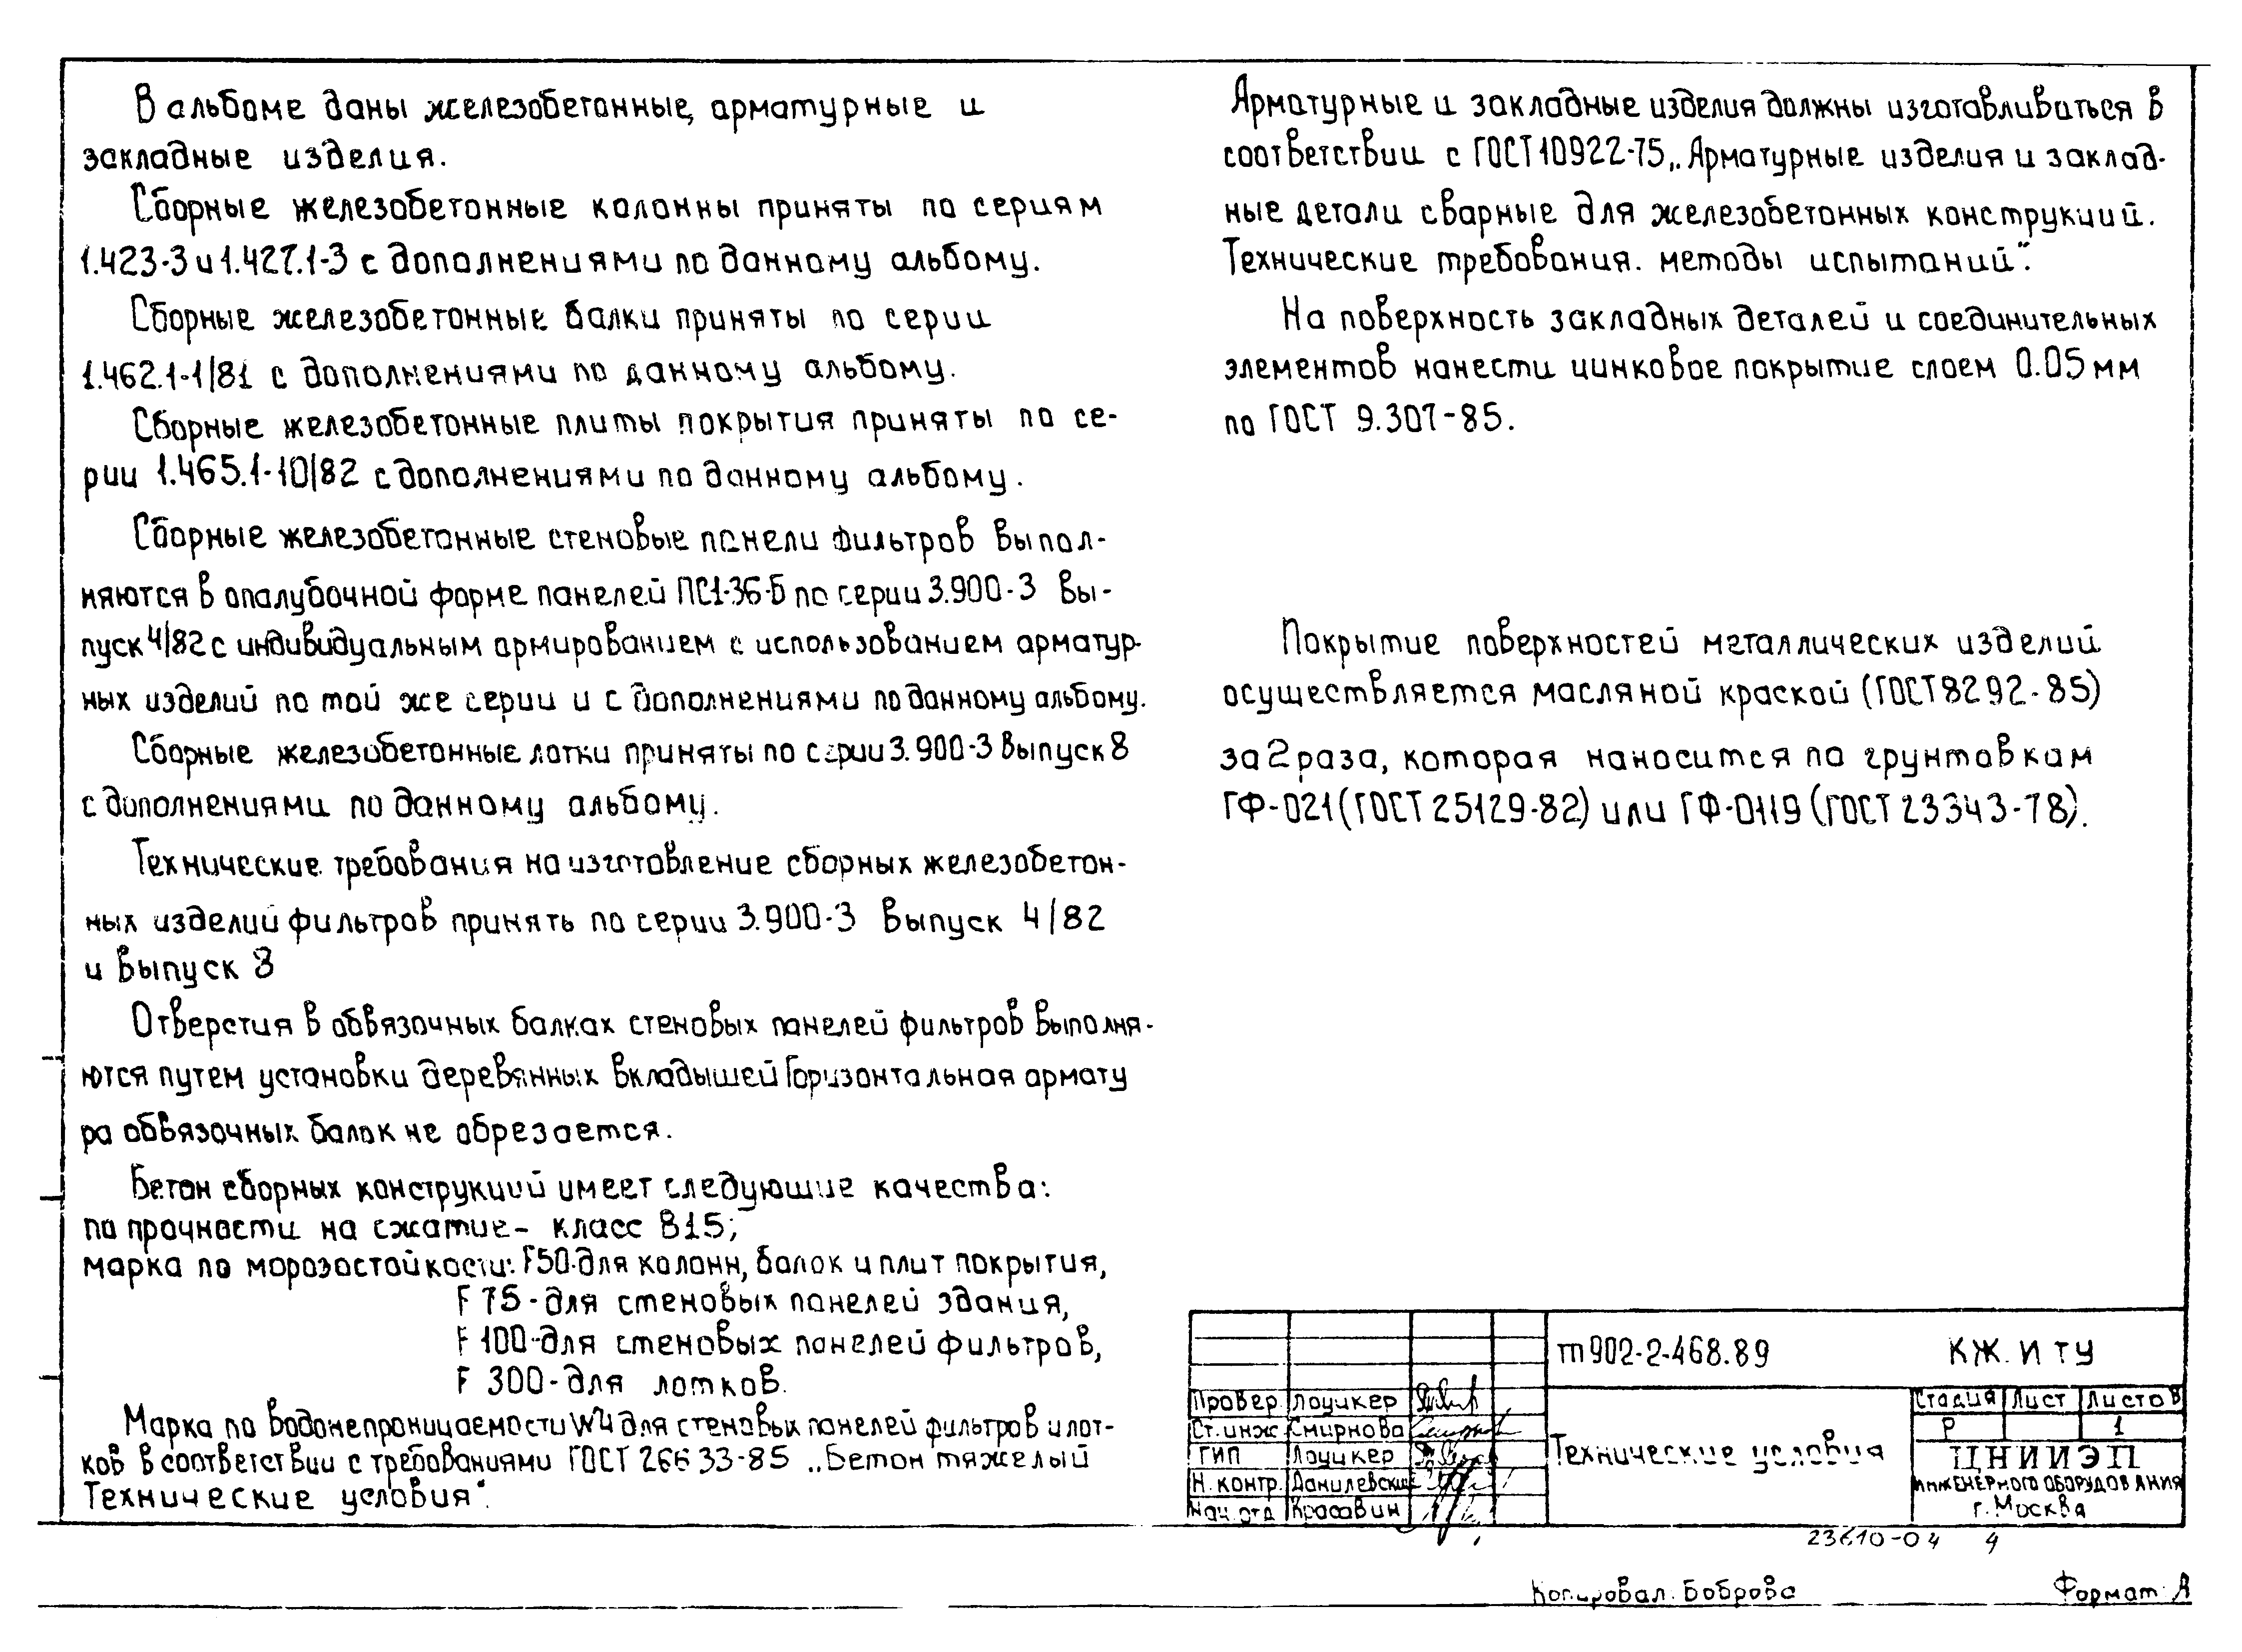 В альбоме даны железобетонные, арматурные и
закладные изделия.
Сборные железобетонные колонны приняты по сериям
1.423-3 и 1.427.1-3 с дополнениями по данному альбому.
Сборные железобетонные балки приняты по серии
1.462.1-1/81 с дополнениями по данному альбому.
Сборные железобетонные плиты покрытия приняты по се-
рии 1.465.1-10/82 с дополнениями по данному альбому.
Сборные железобетонные стеновые панели фильтров выпол-
няются в опалубочной форме панелей ПС1-36-Б по серии 3.900-3 Вы-
пуск 4/82 с индивидуальным армированием с использованием арматур-
ных изделий по той же серии и с дополнениями по данному альбому.
Сборные железобетонные лотки приняты по серии 3.900-3 Выпуск 8
с дополнениями по данному альбому.
Технические требования на изготовление сборных железобетон-
ных изделий фильтров принять по серии 3.900-3 Выпуск 4/82
и Выпуск 8
Отверстия в обвязочных балках стеновых панелей фильтров выполня-
ются путем установки деревянных вкладышей Горизонтальная армату
ра обвязочных балок не обрезается.
Бетон сборных конструкций имеет следующие качества:
по прочности на сжатие - класс В15;
марка по морозостойкости: F50-для колонн, балок и плит покрытия,
F 75-для стеновых панелей здания,
F 100-для стеновых панелей фильтров,
F 300-для лотков.
Марка по водонепроницаемости W4 для стеновых панелей фильтров и лот-
ков в соответствии с требованиями ГОСТ 26633-85 „Бетон тяжелый
Технические условия".
Арматурные и закладные изделия должны изготавливаться в
соответствии с ГОСТ 10922-75 „Арматурные изделия и заклад-
ные детали сварные для железобетонных конструкций.
Технические требования. методы испытаний".
На поверхность закладных деталей и соединительных
элементов нанести цинковое покрытие слоем 0.05 мм
по ГОСТ 9.307-85.
Покрытие поверхностей металлических изделий
осуществляется масляной краской (ГОСТ 8292-85)
за 2 раза, которая наносится по грунтовкам
ГФ-021 (ГОСТ 25129-82) или ГФ-0119 (ГОСТ 23343-78).
т 902-2-468.89 КЖ. И ТУ
Провер. Лоуцкер
Ст. инж Смирнова
ГИП Лоуцкер
Н. контр. Данилевский
Нач. отд Красавин
Технические условия
Стадия Лист Листов
Р 1
ЦНИИЭП
ИНЖЕНЕРНОГО ОБОРУДОВАНИЯ
г. Москва
23610-04 4
Копировал: Боброва Формат: А